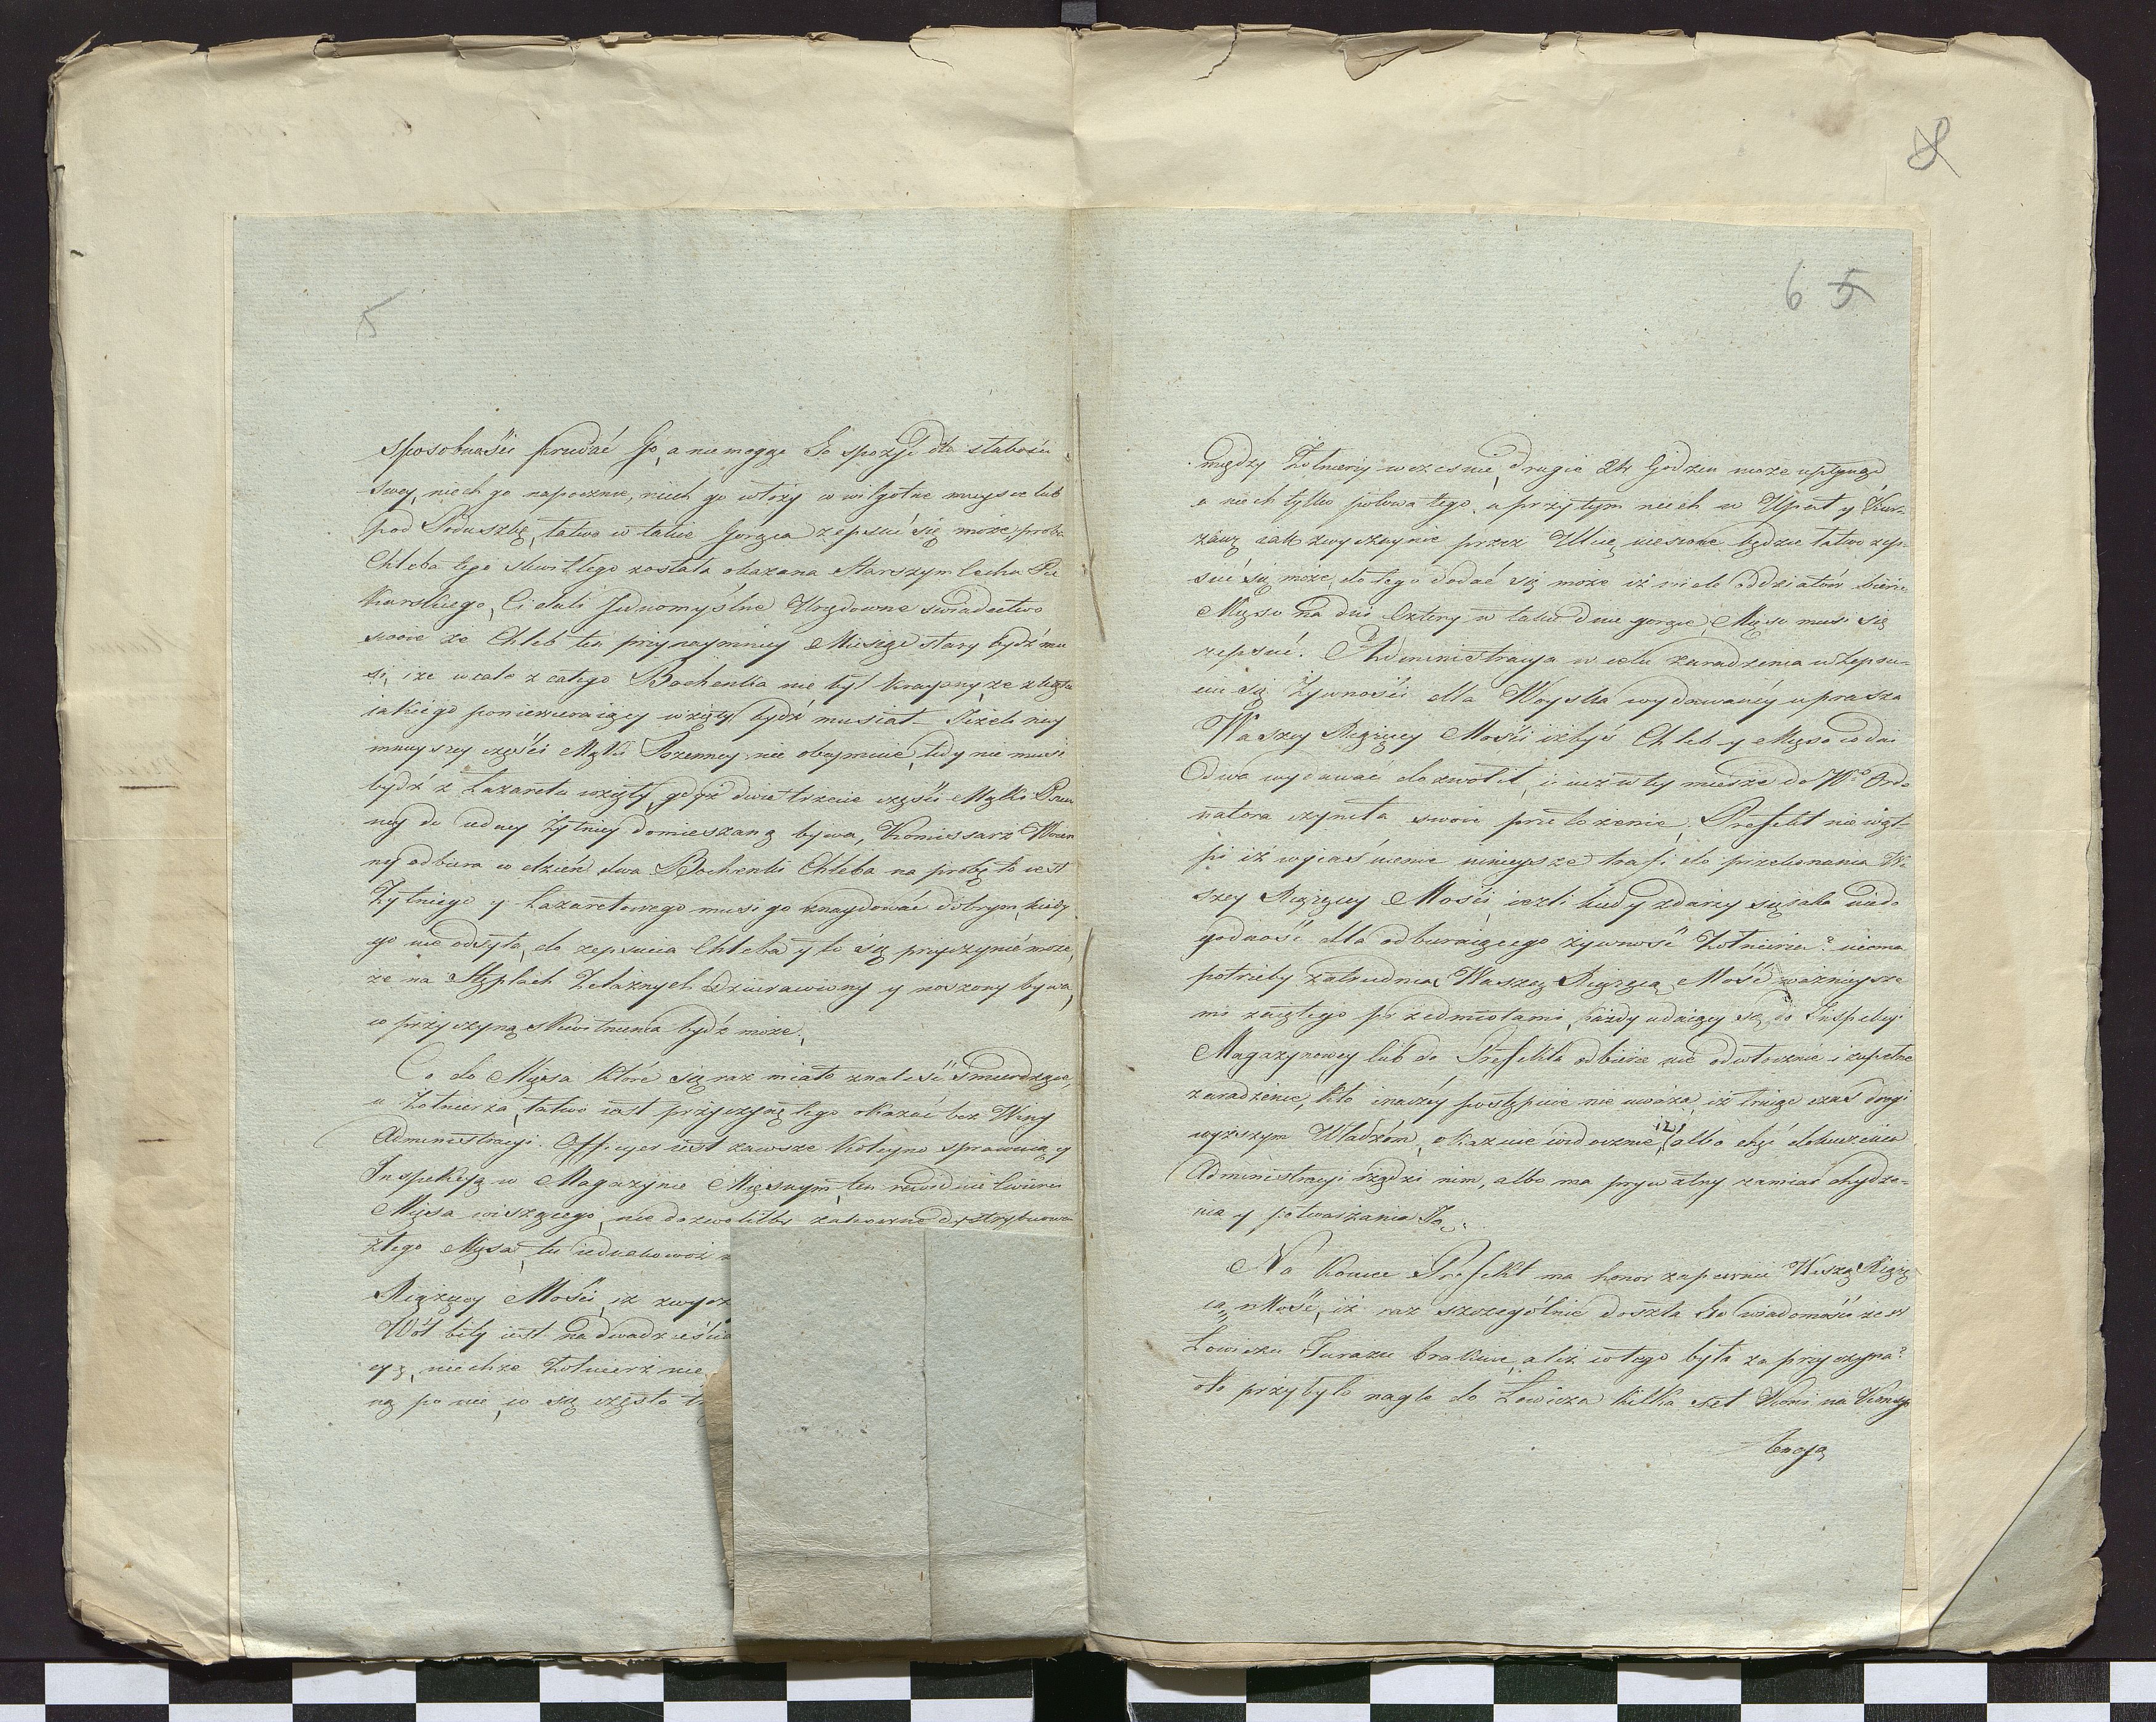 5
sposobności przedać Go, a niemogąc Go spożyć dla słabości
swey, niech go napocznie, niech go włoży w wilgotne mieysce lub
pod Poduszkę, łatwo w takie Gorąca zepsuć się może, proba
Chleba tego skwitłego została okazana Starszym Cechu Pie
karskiego, Ci dali Jednomyślne Urzędowne świadectwo
swoie że Chleb ten przynaymniey Miesiąc stary bydź mu
si, i że wcale z całego Bochenka nie był kraiany, że z kąta
iakiego poniewieraiący wzięty bydź musiał. Jeżeli nay
mnieyszey części Mąki Pszenney nie obeymuie, tedy nie musi
bydź z Lazaretu wzięty, gdyż dwie trzecie części Mąki Pszen
ney do iedney żytniey domieszaną bywa, Komissarz Woien
ny odbiera w dzień dwa Bochenki Chleba na probę to iest
Żytniego y Lazaretowego musi go znaydować dobrym, kiedy
go nie odsyła, do zepsucia Chleba y to się przyczynić może,
że na Sztyftach Żelaznych dziurawiony y noszony bywa,
co przyczyną skwitnienia bydź może.
Co do Mięsa które się raz miało znaleść śmierdzące,
u Żołnierza, łatwo iest przyczynę tego okazać bez Winy
Administracyi. Officyer iest zawsze koleyno sprawuiący
Inspekcyą w Magazynie Mięsnym, ten rewiduie ćwierci
Mięsa wiszącego, nie dozwoliłby zapewne dystrybuowa
złego Mięsa, tu iednakowoż
Xiążęcey Mości, iż zwycz
Wół bity iest na dwadzieścia
cyą, niechże Żołnierz nie
ną po nie, co się często tr
8
6 5
między Żołnierzy wcześnie, drugie 24 Godzin może upłynąć
a niech tylko połowa tego, a przytym niech w Upał y Kur-
zawę iak zwyczaynie przez Ulicę niesione będzie łatwo zep-
suć się może, do tego dodać się może iż wiele oddziałów bierze
Mięso na dni Cztery, w takie dnie gorące, Mięso musi się
zepsuć. Administracya w celu zaradzenia w Zepsu-
ciu się Żywności dla Woyska wydawanéy uprasza
Waszey Xiążęcey Mości iżbyś Chleb y Mięso co dni
dwa wydawać dozwolił, i iuż w tey mierze do Wo Ordo
natora czyniła swoie przełożenie. Prefekt nie wąt-
pi iż wyiaśnienie ninieysze trafi do przekonania Wa
szey Xiążęcey Mości, ieżeli kiedy zdarzy się iaka niedo
godność dla odbieraiącego żywność Żołnierza? niema
potrzeby zatrudniać Waszą Xiążęcą Mość ważnieysze
mi zaiętego przedmiotami, każdy udaiący się do Inspekcyi
Magazynowey lub do Prefekta odbierze nie odwłocznie i zupełne
zaradzenie, kto inaczéy postępuie nie uważa, iż truiąc czas drogi
wyższym Władzom, okazuie widocznie, iż albo chęć dokuczenia
Administracyi rządzi nim, albo ma prywatny zamiar ohydze-
nia y potwarzania Ją.
Na koniec Prefekt ma honor zapewnić Waszą Xiążę
cą Mość, iż raz szczególnie doszła Go wiadomość że w
Łowiczu Furażu brakuie, a cóż w tego była za przyczyna?
oto przybyło nagle do Łowicza kilka set Koni na Konsys
tencyą